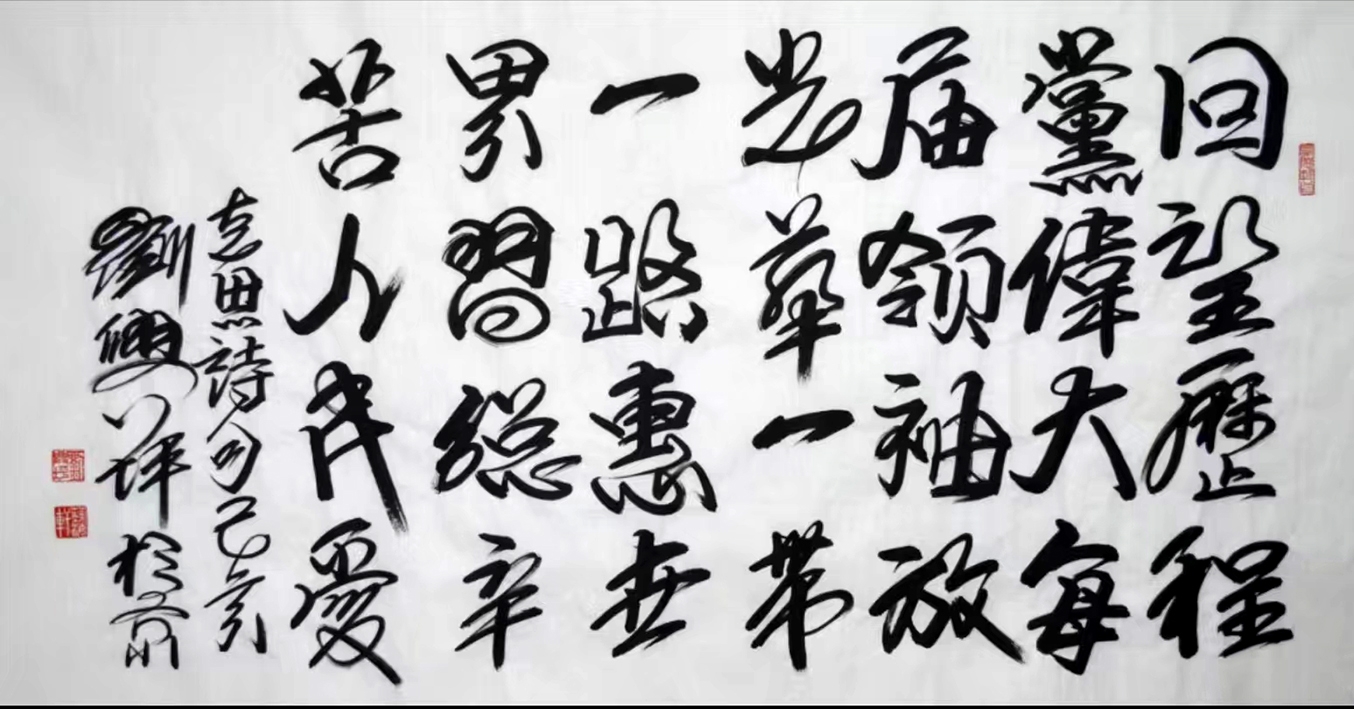 回望歷程
黨偉大每
届领袖放
光華一帶
一路惠世
界習總辛
苦人民愛
志思詩句己亥
劉興祥於